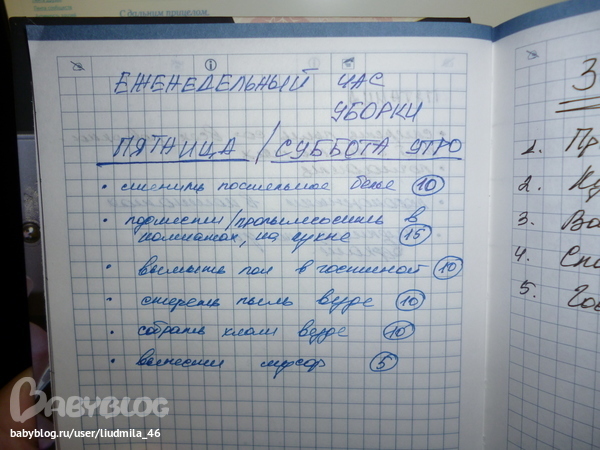 С дольним прицелом
ЕЖЕНЕДЕЛЬНЫЙ ЧАС
УБОРКИ
ПЯТНИЦА / СУББОТА УТРО
• сменить постельное белье 10
• подмести/пропылесосить в
комнатах, на кухне 15
• вымыть пол в гостиной 10
• стереть пыль везде 10
• собрать хлам везде 10
• вынести мусор 5
З
1. Пр
2. Ку
3. Ва
4. Спа
5. Гос
BABYBLOG
babyblog.ru/user/liudmila_46